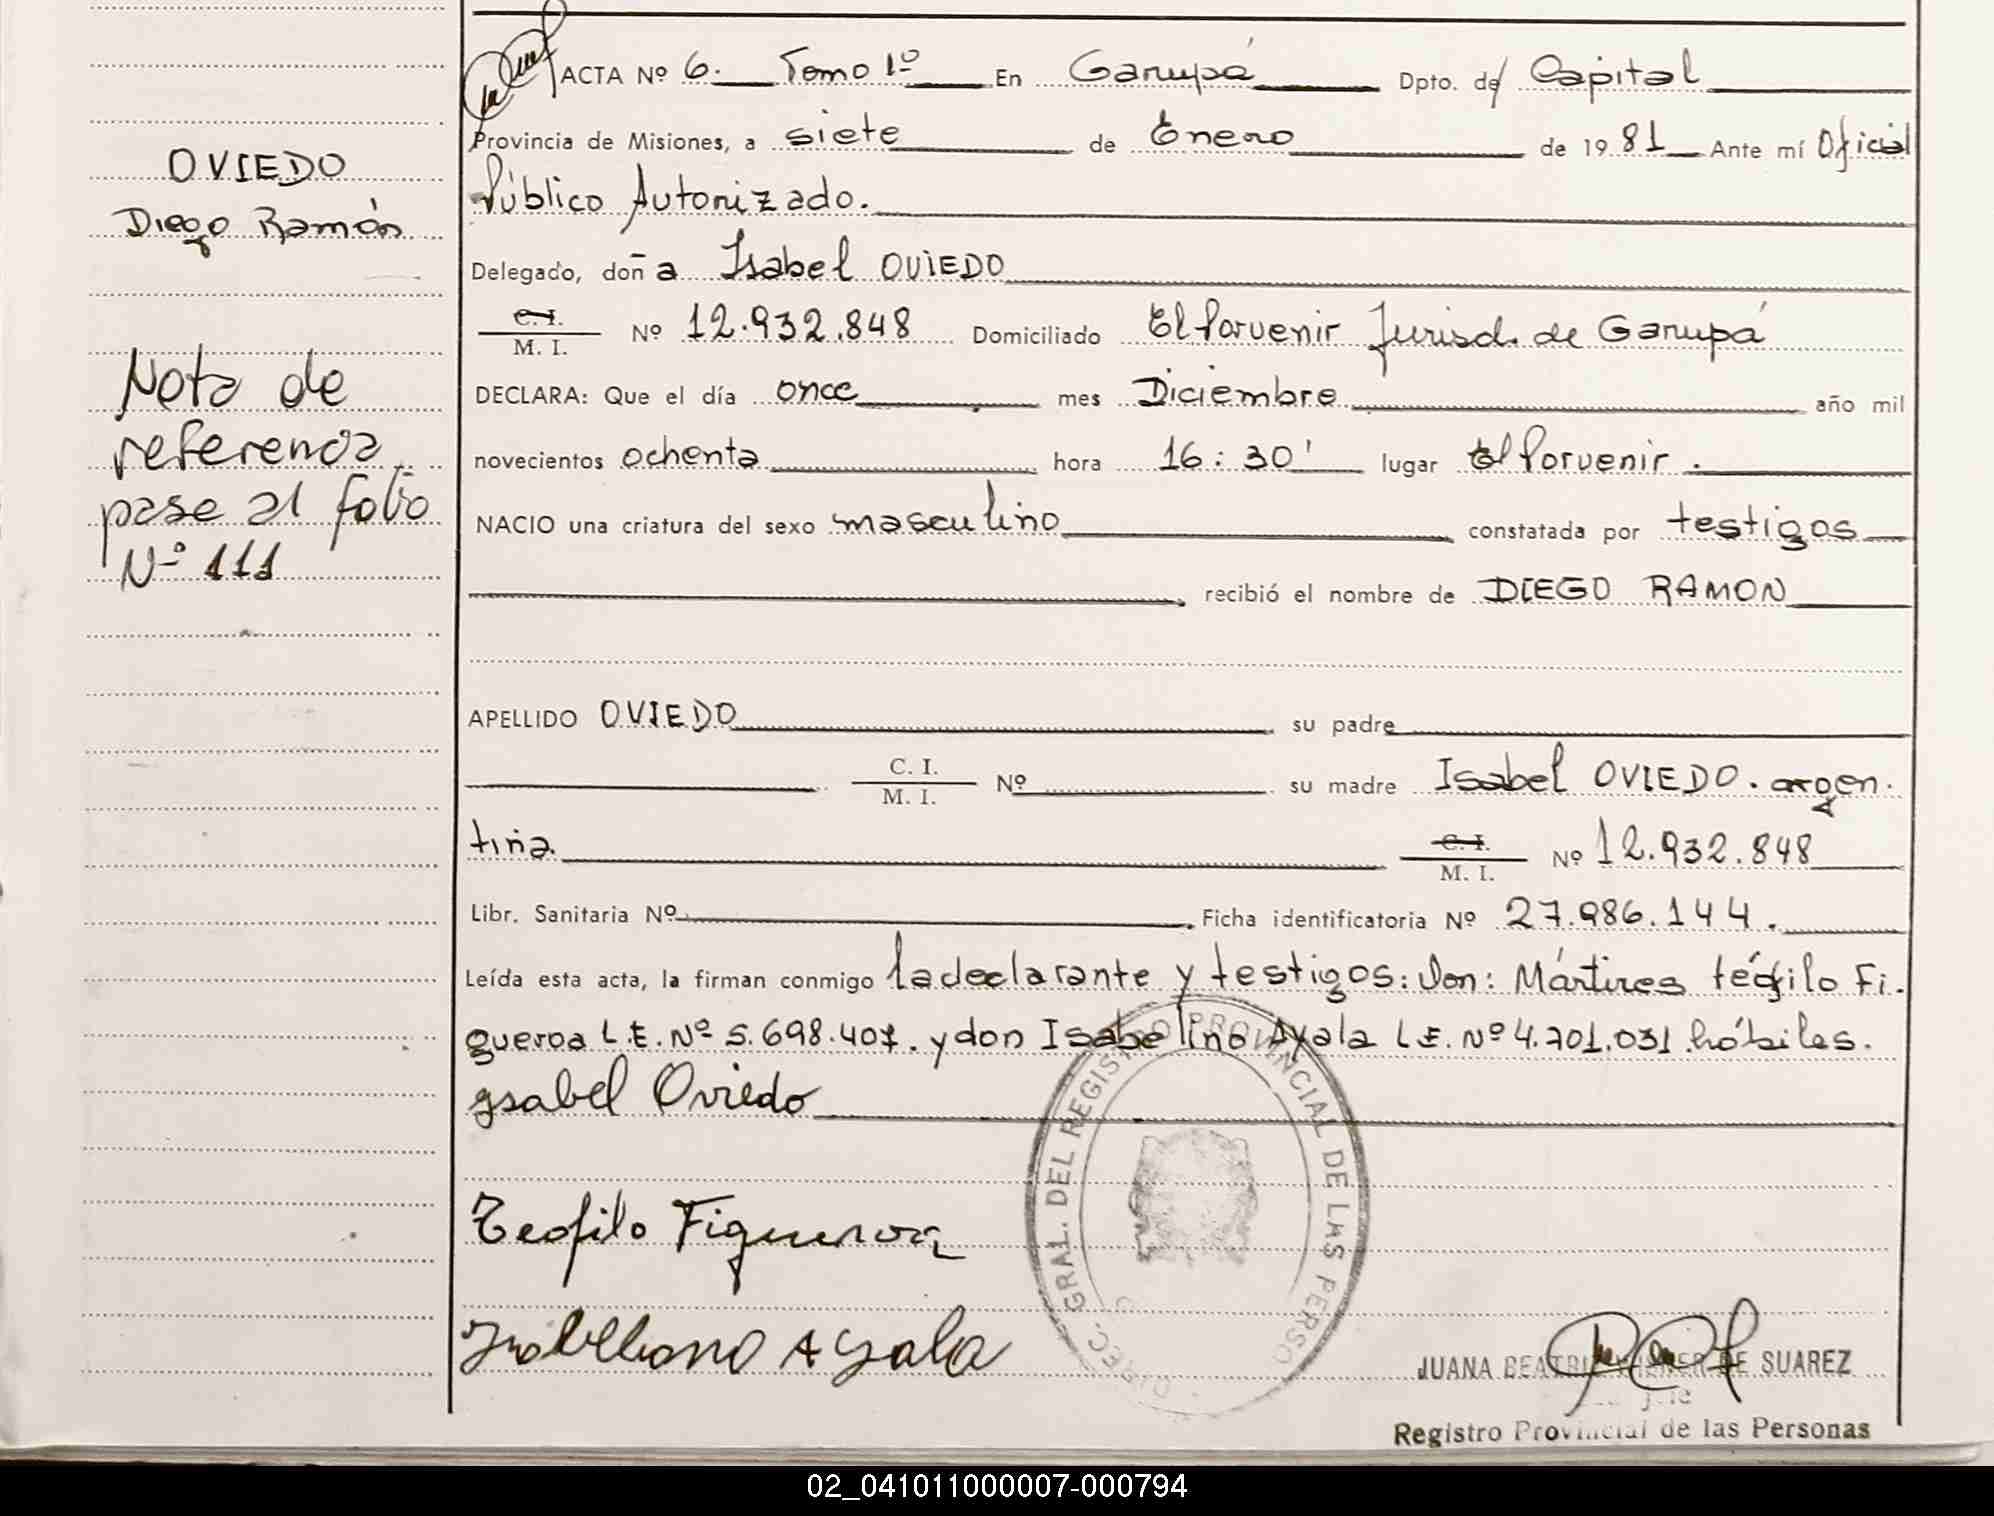 OVIEDO
Diego Ramón
Nota de
referencia
pase al folio
Nº 111
ACTA Nº 6. Tomo 1º En Garupá Dpto. de Capital
Provincia de Misiones, a siete de Enero de 1981 Ante mí Oficial
Público Autorizado.
Delegado, doña Isabel OVIEDO
C. I.
M. I. Nº 12.932.848 Domiciliado El Porvenir Jurisd. de Garupá
DECLARA: Que el día once mes Diciembre año mil
novecientos ochenta hora 16:30' lugar El Porvenir.
NACIO una criatura del sexo masculino constatada por testigos
recibió el nombre de DIEGO RAMON
APELLIDO OVIEDO su padre
C. I.
M. I. Nº su madre Isabel OVIEDO. argen.
tina.
C. I.
M. I. Nº 12.932.848
Libr. Sanitaria Nº Ficha identificatoria Nº 27.986.144.
Leída esta acta, la firman conmigo la declarante y testigos: Don: Mártires teófilo Fi.
gueroa L.E. Nº 5.698.407. y don Isabelino Ayala L.E. Nº 4.701.031 hábiles.
ysabel Oviedo
Teofilo Figueroa
Ayala
DIREC. GRAL. DEL REGISTRO PROVINCIAL DE LAS PERSO
JUANA BEATRIZ DE SUAREZ
Registro Provincial de las Personas
02_041011000007-000794